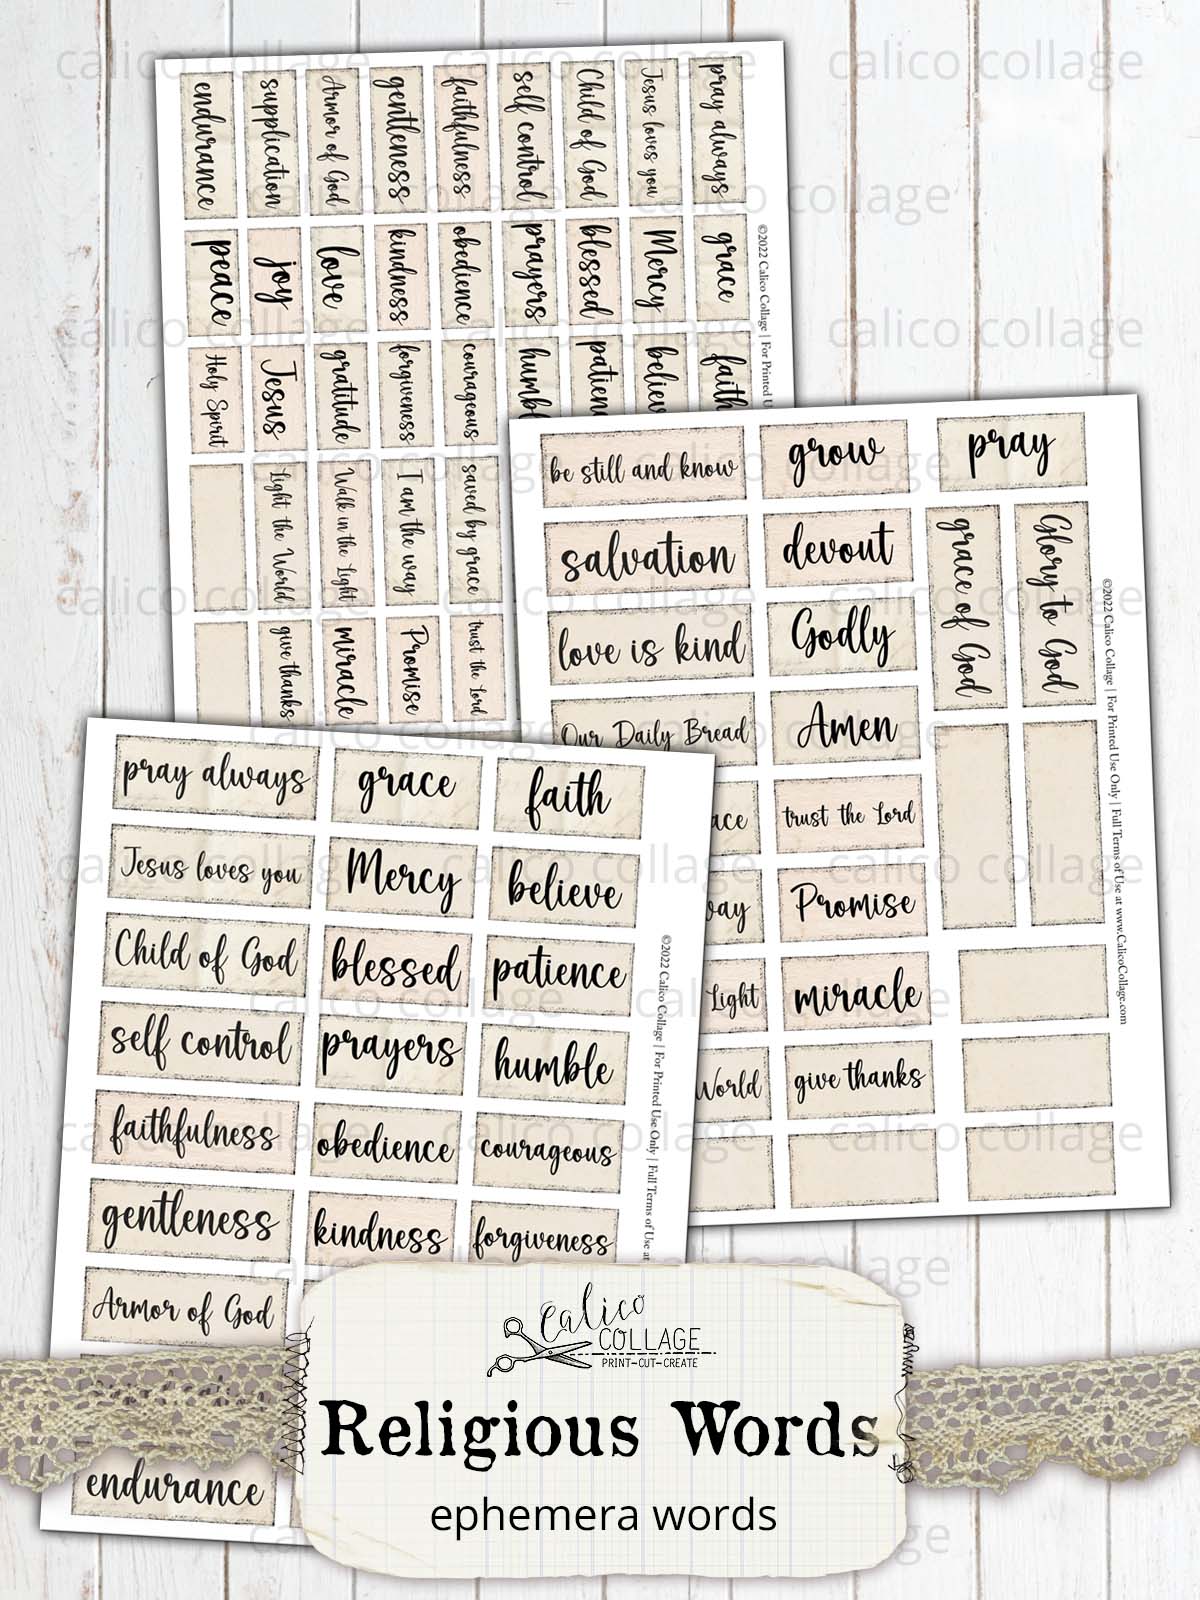 endurance
supplication
Armor of God
gentleness
faithfulness
self control
Child of God
Jesus loves you
pray always
peace
joy
love
kindness
obedience
prayers
blessed
Mercy
grace
Holy Spirit
Jesus
gratitude
forgiveness
courageous
humbl
patien
believ
faith
Light the World
Walk in the Light
I am the way
saved by grace
give thanks
miracle
Promise
trust the Lord
©2022 Calico Collage | For Printed U
be still and know
grow
pray
salvation
devout
love is kind
Godly
Our Daily Bread
Amen
ace
trust the Lord
way
Promise
Light
miracle
World
give thanks
grace of God
Glory to God
©2022 Calico Collage | For Printed Use Only | Full Terms of Use at www.CalicoCollage.com
pray always
grace
faith
Jesus loves you
Mercy
believe
Child of God
blessed
patience
self control
prayers
humble
faithfulness
obedience
courageous
gentleness
kindness
forgiveness
Armor of God
endurance
©2022 Calico Collage | For Printed Use Only | Full Terms of Use at
Calico
COLLAGE
PRINT-CUT-CREATE
Religious Words
ephemera words
calico collage
calico collage
calico collage
calico collage
calico collage
calico collage
calico collage
calico collage
calico collage
calico collage
calico collage
calico collage